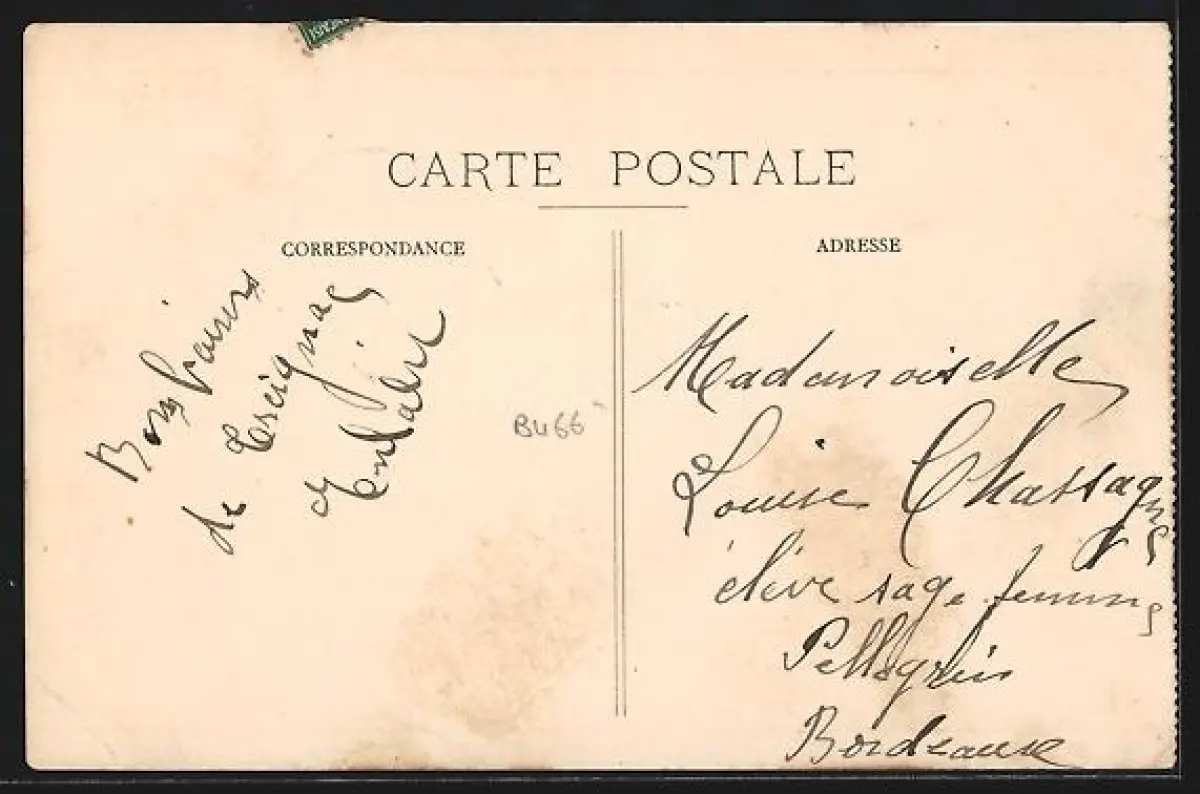 CARTE POSTALE
CORRESPONDANCE
ADRESSE
Bons baisers
de Treignac
Eulalie
BU66
Mademoiselle
Louise Chassagne
élève sage-femme
Pellegrin
Bordeaux